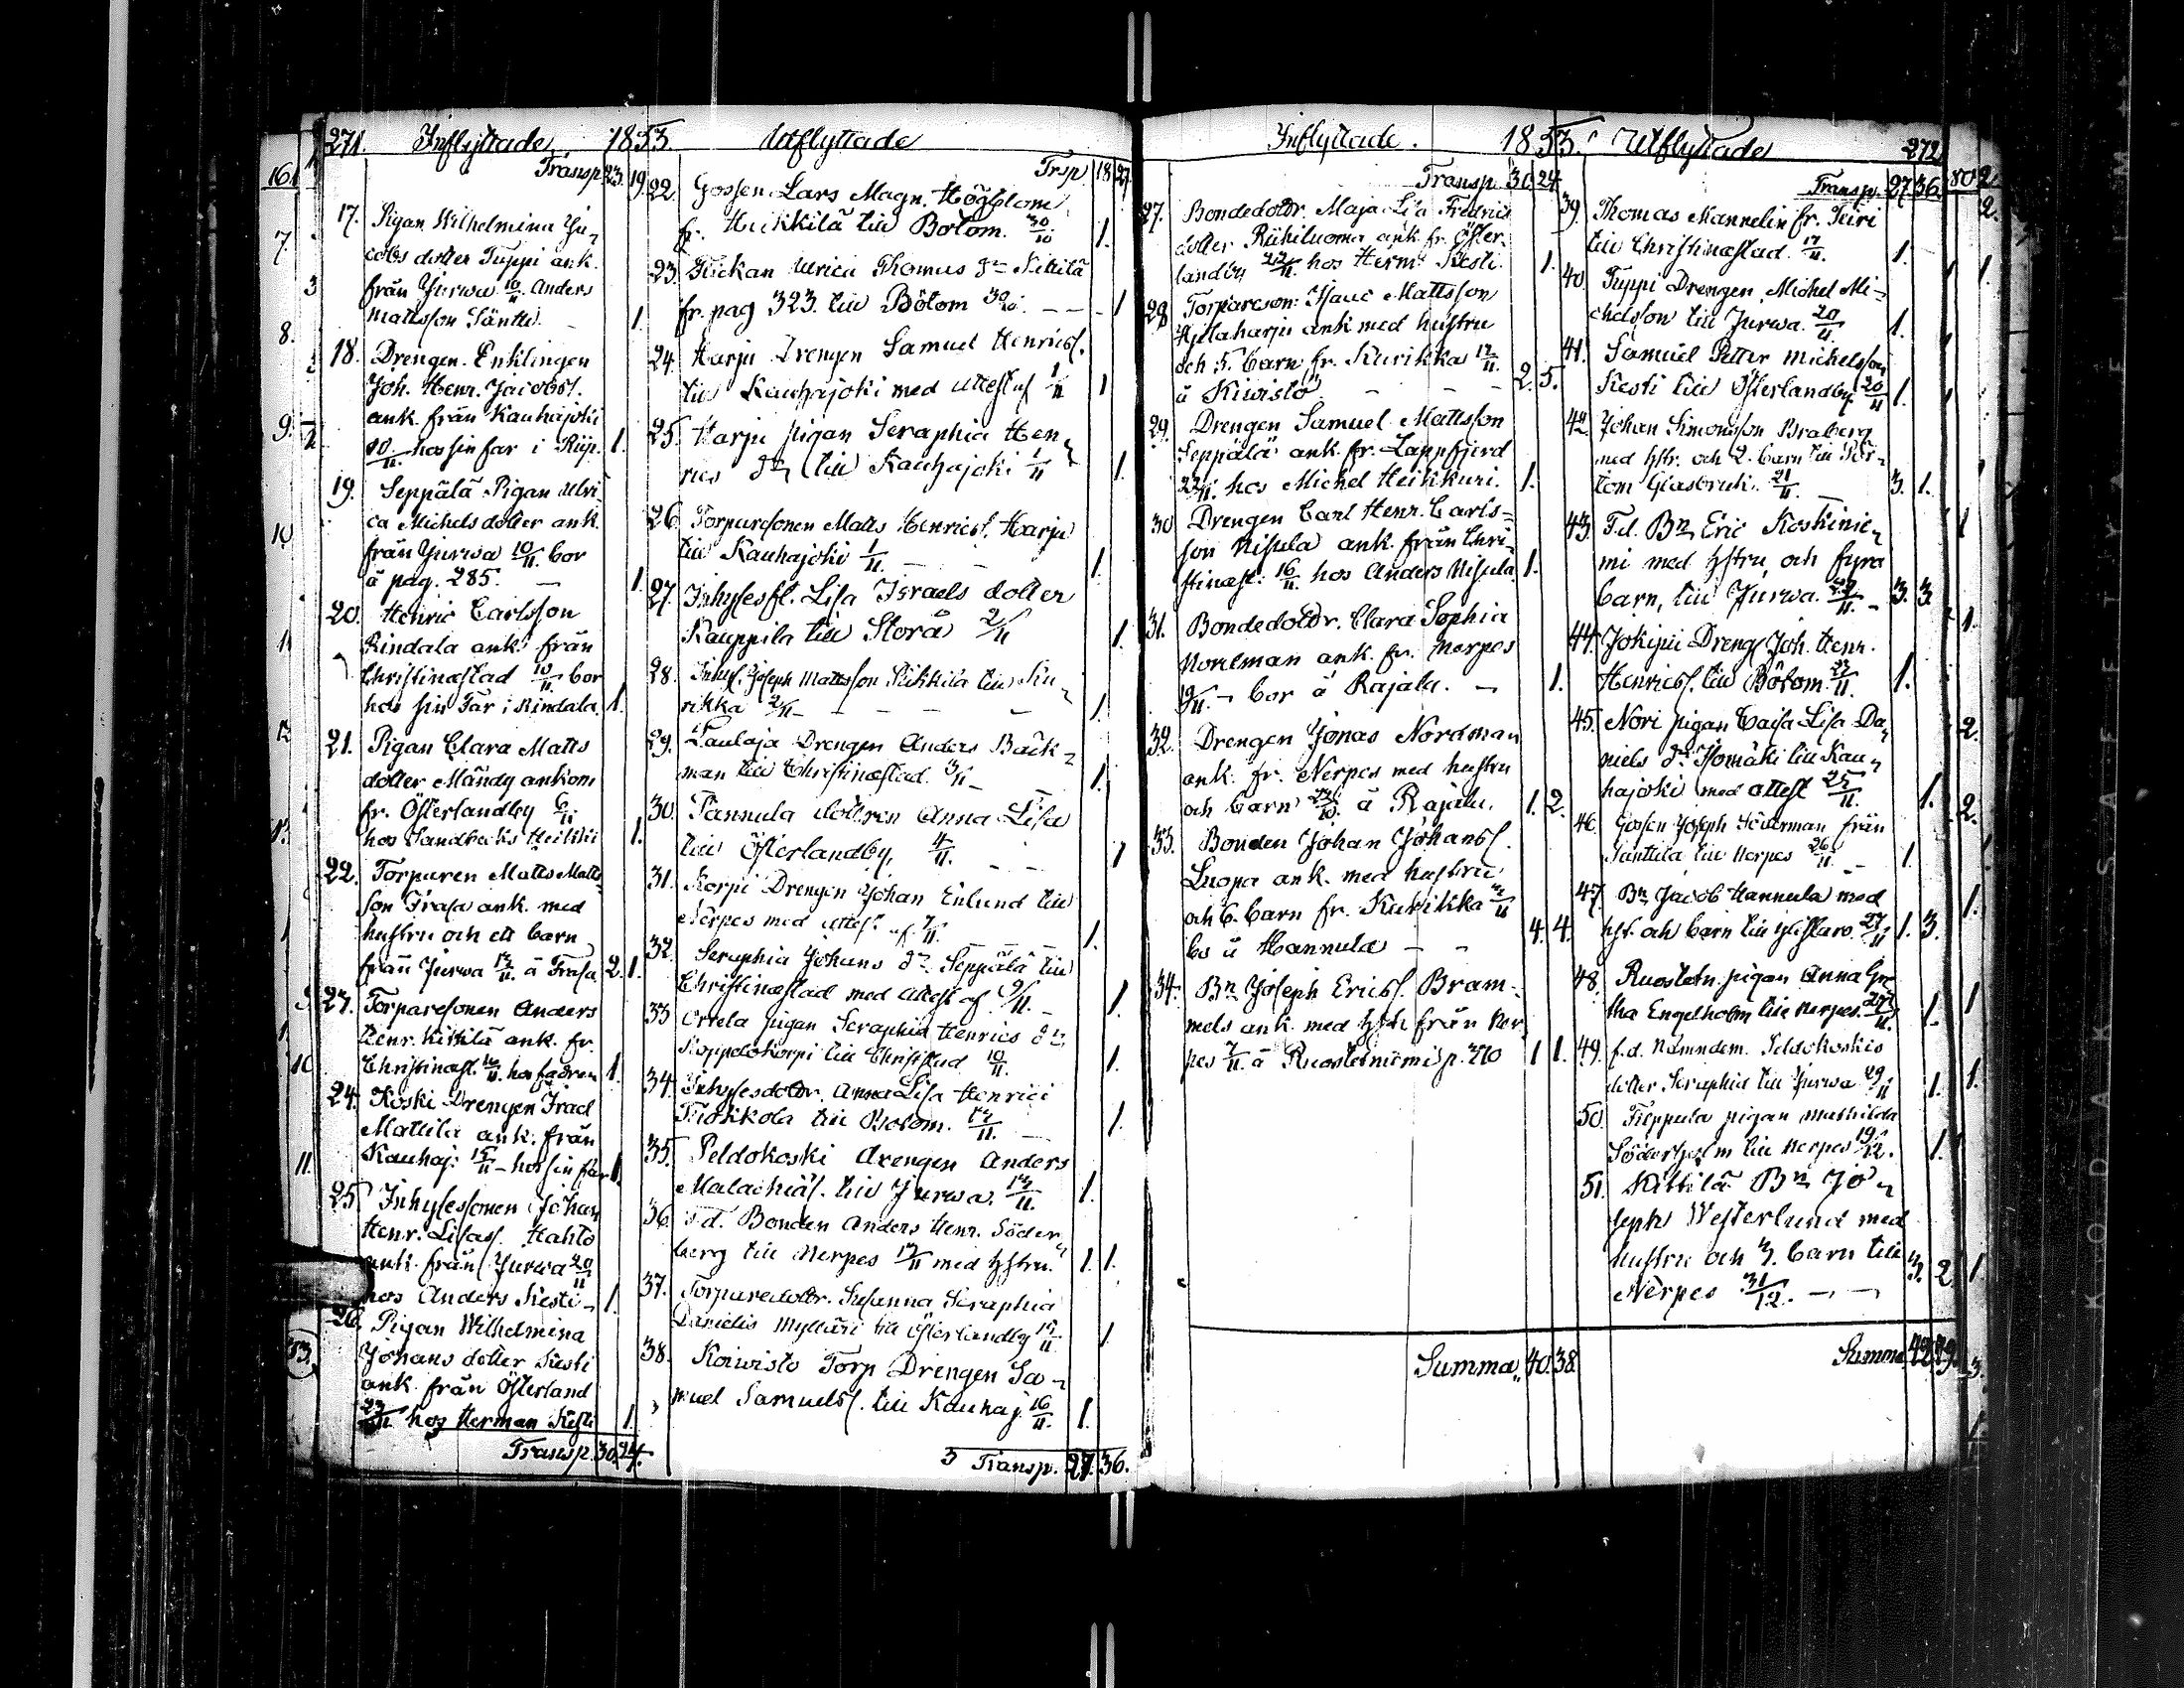 271. Inflyttade 1853.
Transp. 23. 19.
17. Pigan Wilhelmina Ja-
cobs dotter Tuppi ank.
från Jurwa 10/11. Anders
Mattsson Säntti. - 1.
18. Drengen Enklingen
Joh. Henr. Jacobs.
ank. från Kauhajoki
10/11. hos sin far i Riip. 1.
19. Seppälä Pigan Ulri-
ca Michels dotter ank.
från Jurwa 10/11. bor
å pag. 285. - 1.
20. Henric Carlsson
Rindala ank. från
Christinæstad 10/11. bor
hos sin Far i Rindala. 1.
21. Pigan Clara Matts
dotter Mändy ankom
fr. Österlandby 6/11
hos Heikki 1.
22. Torparen Matts Matts-
son Frasa ank. med
hustru och ett barn
från Jurwa 12/11. å Frasa. 2. 1.
23. Torparesonen Anders
Henr. Kittilä ank. fr.
Christinæst. 14/11. hos fadren 1.
24. Koski Drengen Israel
Mattila ank. från
Kauhaj: 15/11 - hos sin far 1.
25. Inhysessonen Johan
Henr. Lisas. Hahto
ank. från Jurwa 20/11
hos Anders Kesti - 1.
26. Pigan Wilhelmina
Johans dotter Kesti
ank. från Österland
23/11 hos Herman Kesti 1.
Transp. 30. 24.
Utflyttade
Trsp. 18 27
22. Gossen Lars Magn. Högblom
fr. Heikkilä till Bötom. 30/10 1.
23. Flickan Ulrica Thomas dr. Kittilä
fr. pag 323. till Bötom 30/10. - - - 1
24. Harju Drengen Samuel Henrics.
till Kauhajoki med attest af 1/11 1
25. Harju pigan Seraphia Hen-
rics dr. till Kauhajoki 1/11 1.
26. Torparesonen Matts Henrics. Harju
till Kauhajoki 1/11. - - 1.
27. Inhysesfl. Lisa Israels dotter
Kauppila till Storå 2/11 1.
28. Inhys. Joseph Mattsson Kiikkilä till Ku-
rikka 2/11 - - - - - 1.
29. Paulaja Drengen Anders Bäck-
man till Christinæstad. 3/11 - 1.
30. Pannula dottren Anna Lisa
till Österlandby. 4/11. - - 1
31. Korpi Drengen Johan Enlund till
Nerpes med attest af. 7/11. 1.
32. Seraphia Johans dr. Seppälä till
Christinæstad med attest af 9/11. - 1.
33 Orrela pigan Seraphia Henrics dr.
Koppelokorpi till Christstad 10/11. 1.
34. Inhysesdottr. Anna Lisa Henrici
Trokkola till Bötom. 12/11. - 1.
35. Peldokoski drengen Anders
Malachias. till Jurwa. 13/11. 1.
36. F.d. Bonden Anders Henr. Söder-
berg till Nerpes 13/11 med hstru. 1. 1.
37. Torparedottr. Susanna Seraphia
Danielis Mylläri till Österlandby 15/11 1.
38. Koiwisto Torp Drengen Sa-
muel Samuels. till Kauhaj. 16/11. 1.
3 Transp. 27. 36.
Inflyttade. 1853.
Transp. 30. 24
27. Bondedottr. Maja Lisa Fredrics
dotter Riihiluoma ank. fr. Öster-
landby 22/11. hos Herm: Kesti. 1.
28 Torpareson: Isaac Mattsson
Hjillaharju ank med hustru
och 5. barn fr. Kurikka 17/11.
å Kiwistö - - - 2. 5.
29. Drengen Samuel Mattsson
Seppälä ank. fr. Lappfjerd
22/11. hos Michel Heikkuri. 1.
30 Drengen Carl Henr. Carls-
son Nisula ank. från Chri-
stinæst: 16/11. hos Anders Nisula. 1.
31. Bondedottr. Clara Sophia
Norlman ank. fr. Nerpes
19/11. - bor å Rajala. - 1.
32. Drengen Jonas Nordman
ank. fr. Nerpes med hustru
och barn 23/10. å Rajala. 1. 2.
33. Bonden Johan Johans.
Luopa ank. med hustru
och 6. barn fr. Kurikka /11
bo å Hannula - - 4. 4.
34. Bn Joseph Erics. Bram-
mels ank. med hstr. från Ner-
pes 7/11. å Ruostetniemi p. 270 1 1.
Summa, 40. 38.
Utflyttade 272
Transp. 27. 36.
39. Thomas Mannelin fr. Keiri
till Christinæstad. 17/11. 1.
40. Tuppi Drengen Michel Mi-
chelsson till Jurwa. 20/11. 1.
41. Samuel Petter Michelsson
Kesti till Österlandby 20/11 1.
42. Johan Simonsson Braberg
med hstr. och 2. barn till Pör-
tom Glasbruk. 21/11. - 3. 1.
43. F.d. Bn. Eric Koskinie-
mi med hstru och fyra
barn, till Jurwa. 22/11. - 3. 3.
44. Jokipii Dreng Joh. Henr.
Henrics. till Bötom. 23/11. 1.
45. Nori pigan Caisa Lisa Da-
niels dr. Isomäki till Kau-
hajoki med attest 25/11. 1.
46. Gossen Joseph Söderman från
Santtila till Nerpes 26/11. - 1.
47. Bn Jacob Hannula med
hst. och barn till Ylistaro. 27/11 1. 3.
48. Ruostetn. pigan Anna Gre-
tha Engelholm till Nerpes. 27/11. 1.
49. f.d. Nämndem. Peldokoskis
dotter Seraphia till Jurwa 29/11 1.
50. Fileppula pigan Mathilda
Söderholm till Nerpes 19/12. 1.
51. Kittilä Bn Jo-
seph Westerlund med
hustru och 3. barn till
Nerpes 31/12. - - 3. 2
Summa 42 49.
KODAK SAFETY FILM